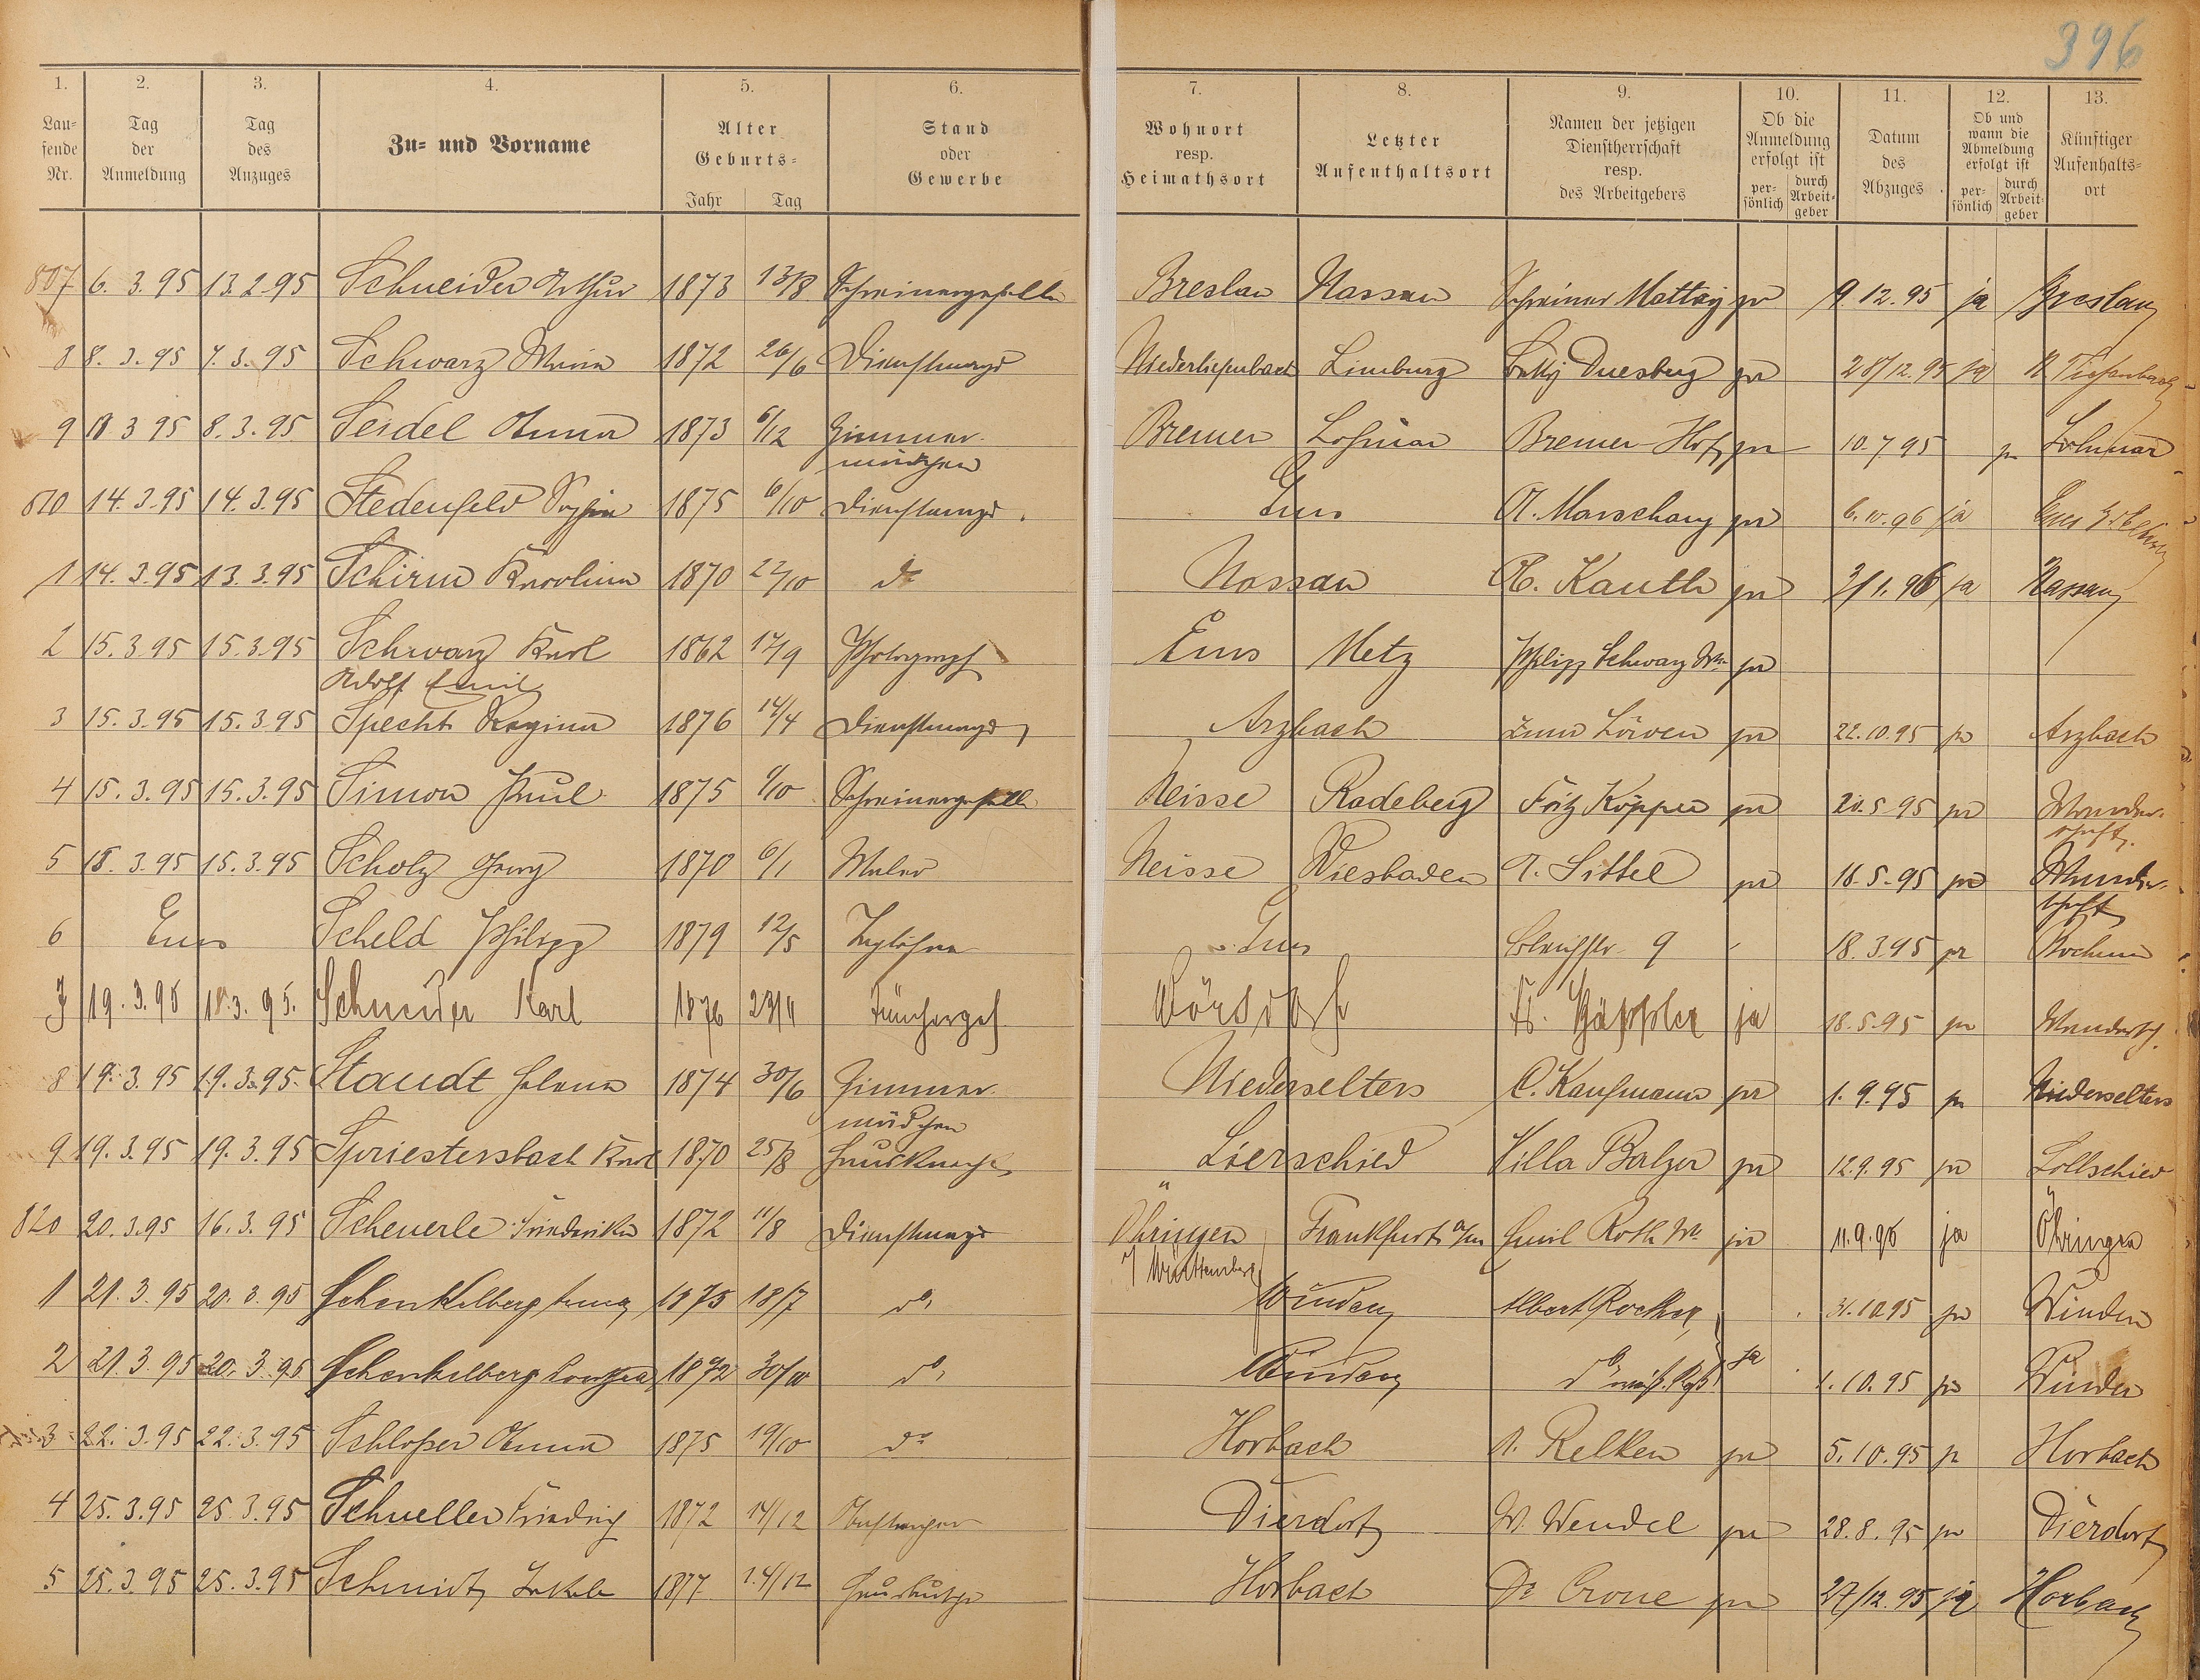 396
1. 2. 3. 4. 5. 6. 7. 8. 9. 10. 11. 12. 13.
Laufende Nr. | Tag der Anmeldung | Tag des Anzuges | Zu- und Vorname | Alter Geburts- Jahr Tag | Stand oder Gewerbe | Wohnort resp. Heimathsort | Letzter Aufenthaltsort | Namen der jetzigen Dienstherrschaft resp. des Arbeitgebers | Ob die Anmeldung erfolgt ist persönlich durch Arbeitgeber | Datum des Abzuges | Ob und wann die Abmeldung erfolgt ist persönlich durch Arbeitgeber | Künftiger Aufenthaltsort
807 6. 3. 95 13. 2. 95 Schneider Arthur 1873 13/8 Schreinergeselle Breslau Nassau Schreiner Mattay ja 9. 12. 95 ja Breslau
8 8. 3. 95 7. 3. 95 Schwarz 1872 26/6 Dienstmagd Niedertiefenbach Limburg Duesberg ja 28/12. 95 ja N. Tiefenbach
9 8 3 95 8. 3. 95 Seidel Anna 1873 6/12 Zimmermädchen Bremen Lohmar Bremer Hof ja 10. 7 95 ja Lohmar
810 14. 3. 95 14. 3. 95 Stedenfeld Sophie 1875 6/10 Dienstmagd Ems A. Marschang ja 6. 10. 96 ja Ems
1 14. 3. 95 13. 3. 95 Schirm Karolina 1870 22/10 do Nassau Kauth ja 2/1. 96 ja Nassau
2 15. 3. 95 15. 3. 95 Schwarz Karl Adolf Emil 1862 17/9 Photograph Ems Metz Philipp Schwarz Ww. ja
3 15. 3. 95 15. 3. 95 Specht Regina 1876 14/4 Dienstmagd Arzbach zum Löwen ja 22. 10. 95 ja Arzbach
4 15. 3. 95 15. 3. 95 Simon Paul 1875 Schreinergeselle Neisse Radeberg Fritz Köpper ja 20. 5 95 ja Wanderschaft
5 15. 3. 95 15. 3. 95 Scholz Georg 1870 6/1 Maler Neisse Wiesbaden A. Sittel ja 16. 5. 95 ja Wanderschaft
6 Ems Scheld Philipp 1879 12/5 Taglöhner Ems 9 18. 3. 95 ja Bochum
7 19. 3. 95 18. 3. 95. Schneider Karl 1876 23/11 Tüncherges. Wörsdorf ja 18. 5. 95 ja Wandersch.
8 19. 3. 95 19. 3. 95. Staudt Helena 1874 30/6 Zimmermädchen Niederselters C. Kaufmann ja 1. 9. 95 ja Niederselters
9 19. 3. 95 19. 3. 95 Spriestersbach Karl 1870 25/8 Hausknecht Lierschied Villa Balzer ja 12. 9. 95 ja Lollschied
820 20. 3. 95 16. 3. 95 Scheuerle Friederike 1872 11/8 Dienstmagd Öhringen i/ Württemberg Frankfurt a/m Emil Roth Ww. ja 11. 9. 96 ja Öhringen
1 21. 3. 95 20. 3. 95 Schenkelberg Anna 1875 18/7 do, Winden Albert Rocker 31. 10 95 ja Winden
2 21. 3. 95 20. 3. 95 Schenkelberg 1872 30/10 do, Winden do ja 1. 10. 95 ja Winden
3 22. 3. 95 22. 3. 95 Schloßer Anna 1875 19/10 do Horbach A. Relken ja 5. 10. 95 ja Horbach
4 25. 3. 95 25. 3. 95 Schueller Friedrich 1872 14/12 Dierdorf W. Wendel ja 28. 8. 95 ja Dierdorf
5 25. 3. 95 25. 3. 95 Schmidt Jakob 1877 24/12 Hausbursche Horbach Dr Crone ja 27/12. 95 ja Horbach